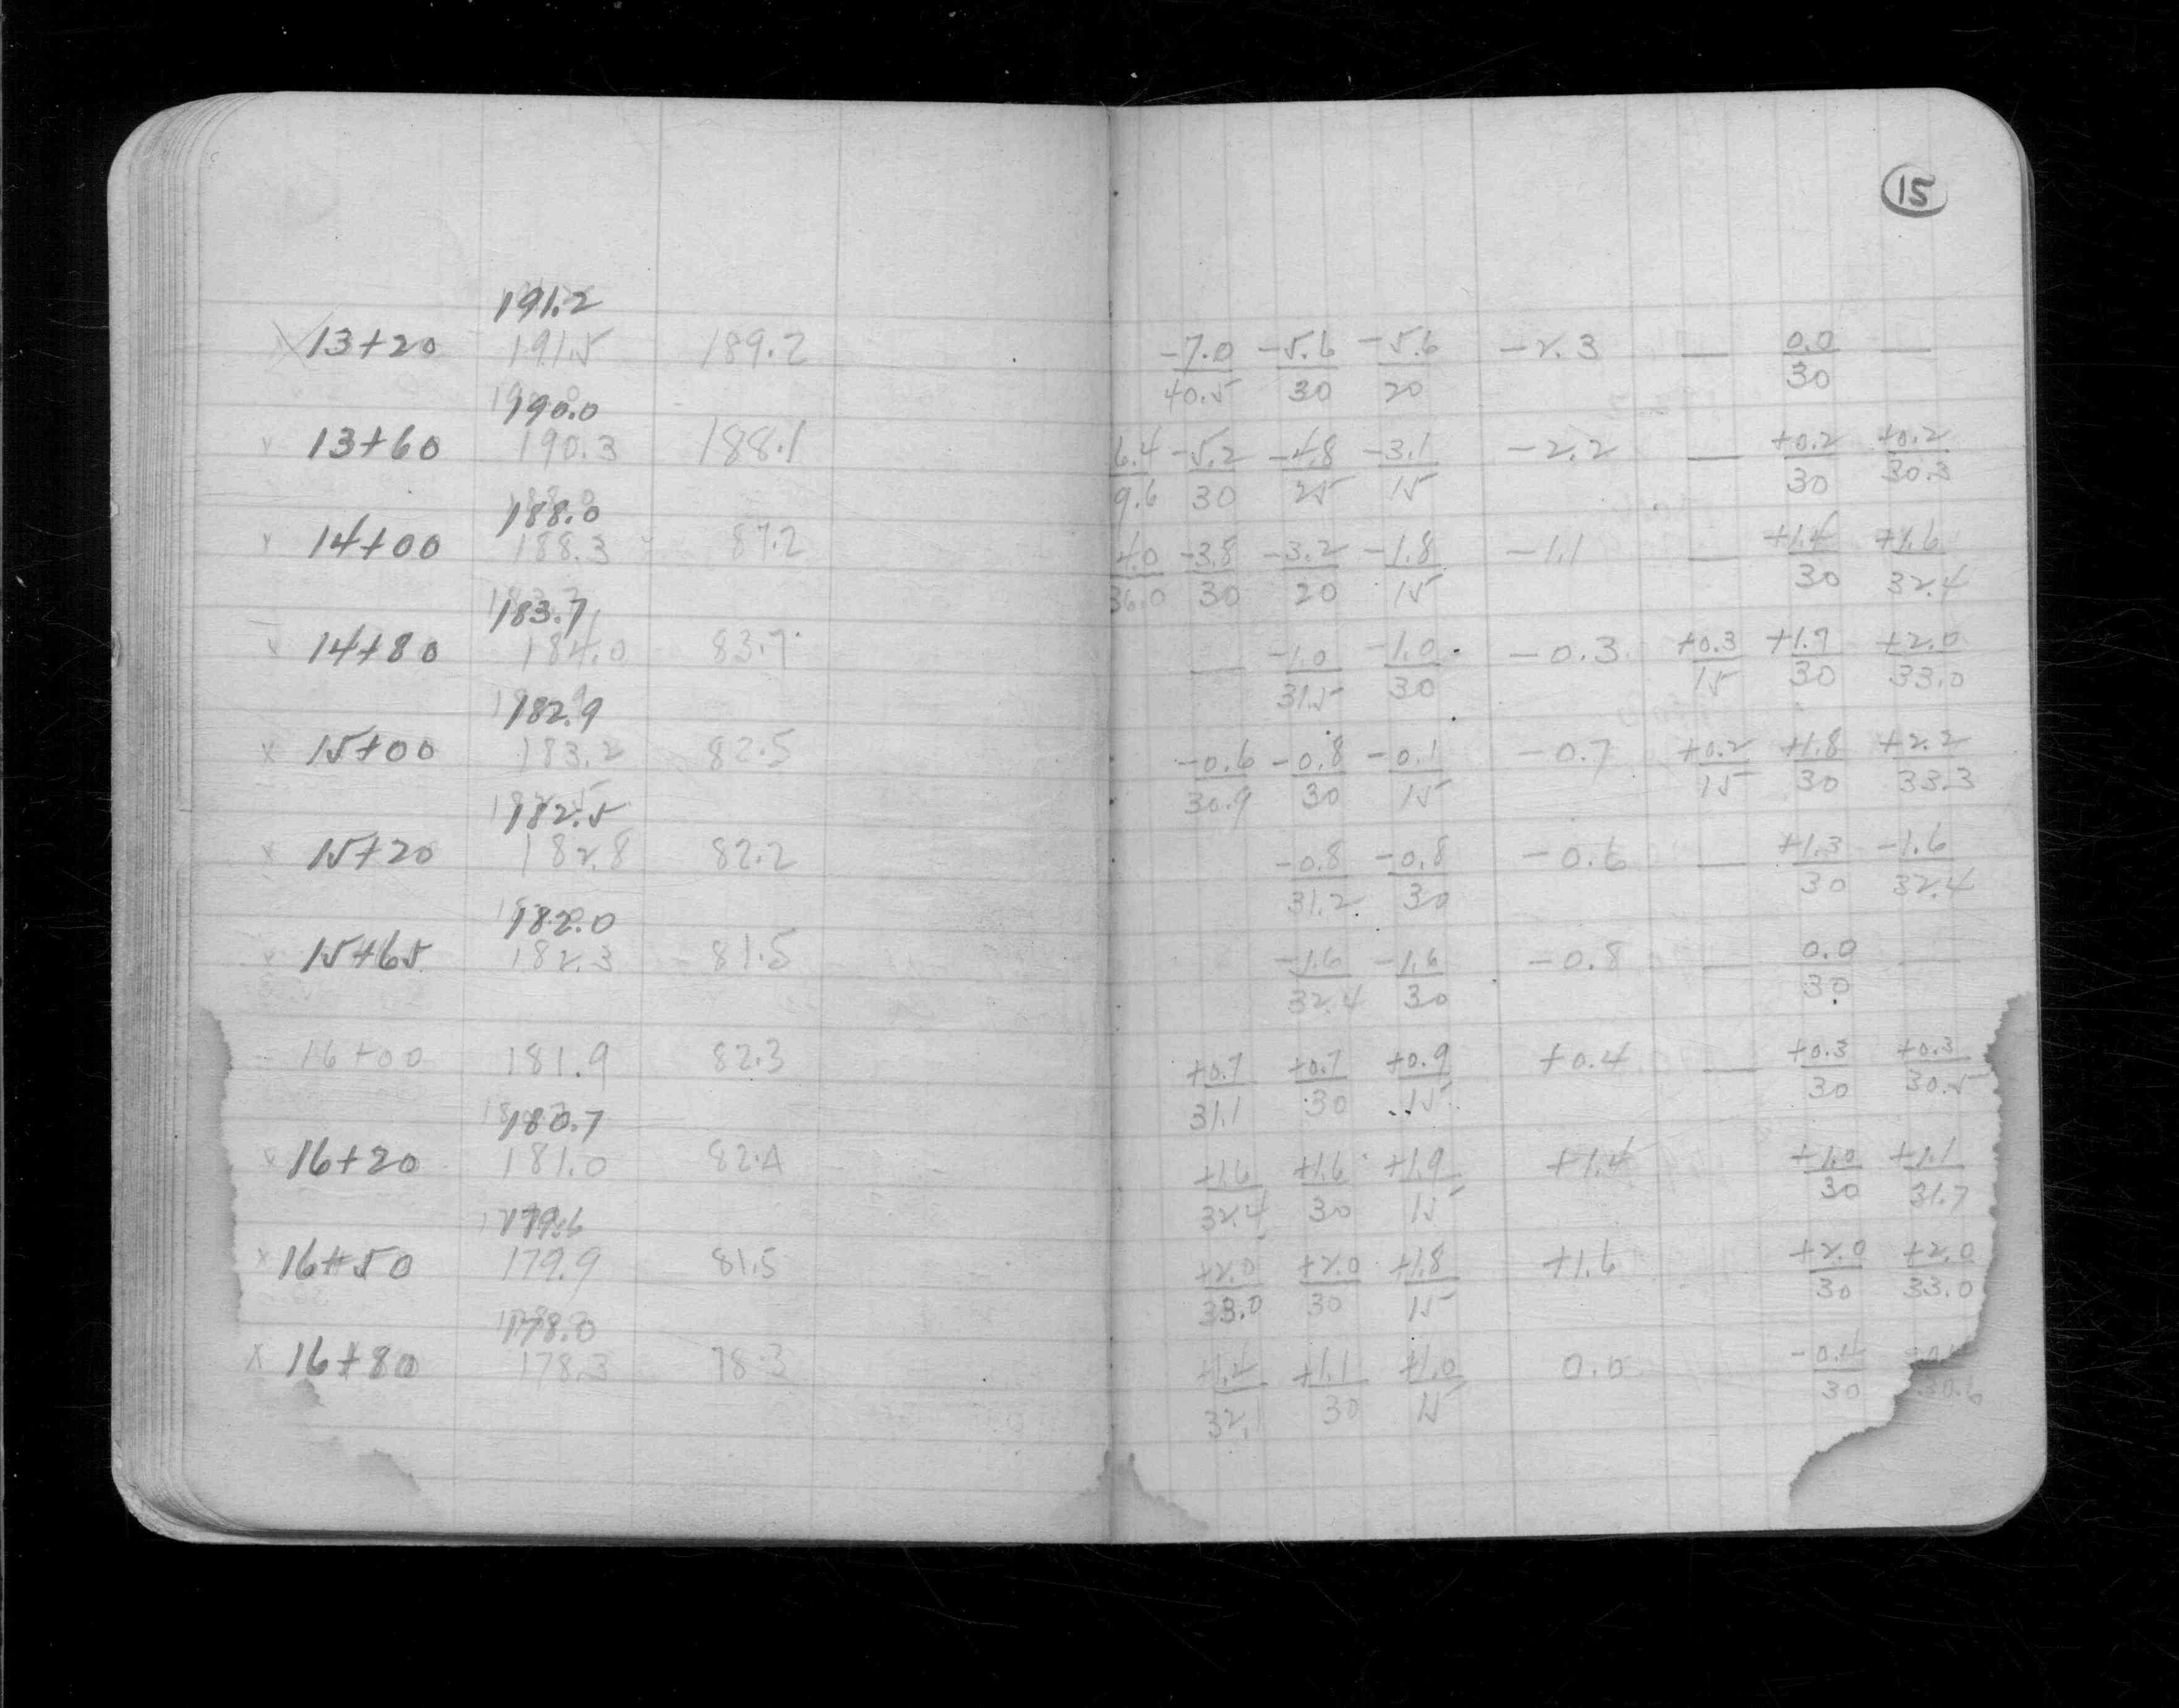 15
191.2
13+20 191.5 189.2 -7.0/40.5 -5.6/30 -5.6/20 -2.3 — 0.0/30 —
190.0
13+60 190.3 188.1 6.4/9.6 -5.2/30 -4.8/25 -3.1/15 -2.2 — +0.2/30 +0.2/30.3
188.0
14+00 188.3 87.2 4.0/36.0 -3.8/30 -3.2/20 -1.8/15 -1.1 — +1.4/30 +1.6/32.4
183.7
14+80 184.0 83.7 — -1.0/31.5 -1.0/30 -0.3 +0.3/15 +1.9/30 +2.0/33.0
182.9
x 15+00 183.2 82.5 -0.6/30.9 -0.8/30 -0.1/15 -0.7 +0.2/15 +1.8/30 +2.2/33.3
182.5
x 15+20 182.8 82.2 -0.8/31.2 -0.8/30 -0.6 — +1.3/30 -1.6/32.4
182.0
15+65 182.3 81.5 -1.6/32.4 -1.6/30 -0.8 — 0.0/30 —
16+00 181.9 82.3 +0.7/31.1 +0.7/30 +0.9/15 +0.4 — +0.3/30 +0.3/30.5
180.7
16+20 181.0 82.4 +1.6/32.4 +1.6/30 +1.9/15 +1.4 +1.0/30 +1.1/31.7
179.6
x 16+50 179.9 81.5 +2.0/33.0 +2.0/30 +1.8/15 +1.6 +2.0/30 +2.0/33.0
178.0
x 16+80 178.3 78.3 +1.4/32.1 +1.1/30 +1.0/15 0.0 -0.4/30 30.6